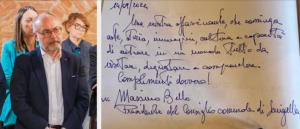 Una mostra affascinante che coniuga
arte, storia, cultura e capacità
di entrare in un mondo tutto da
visitare, degustare e comprendere.
Complimenti davvero!
Massimo Bello
Presidente del Consiglio comunale di Senigallia